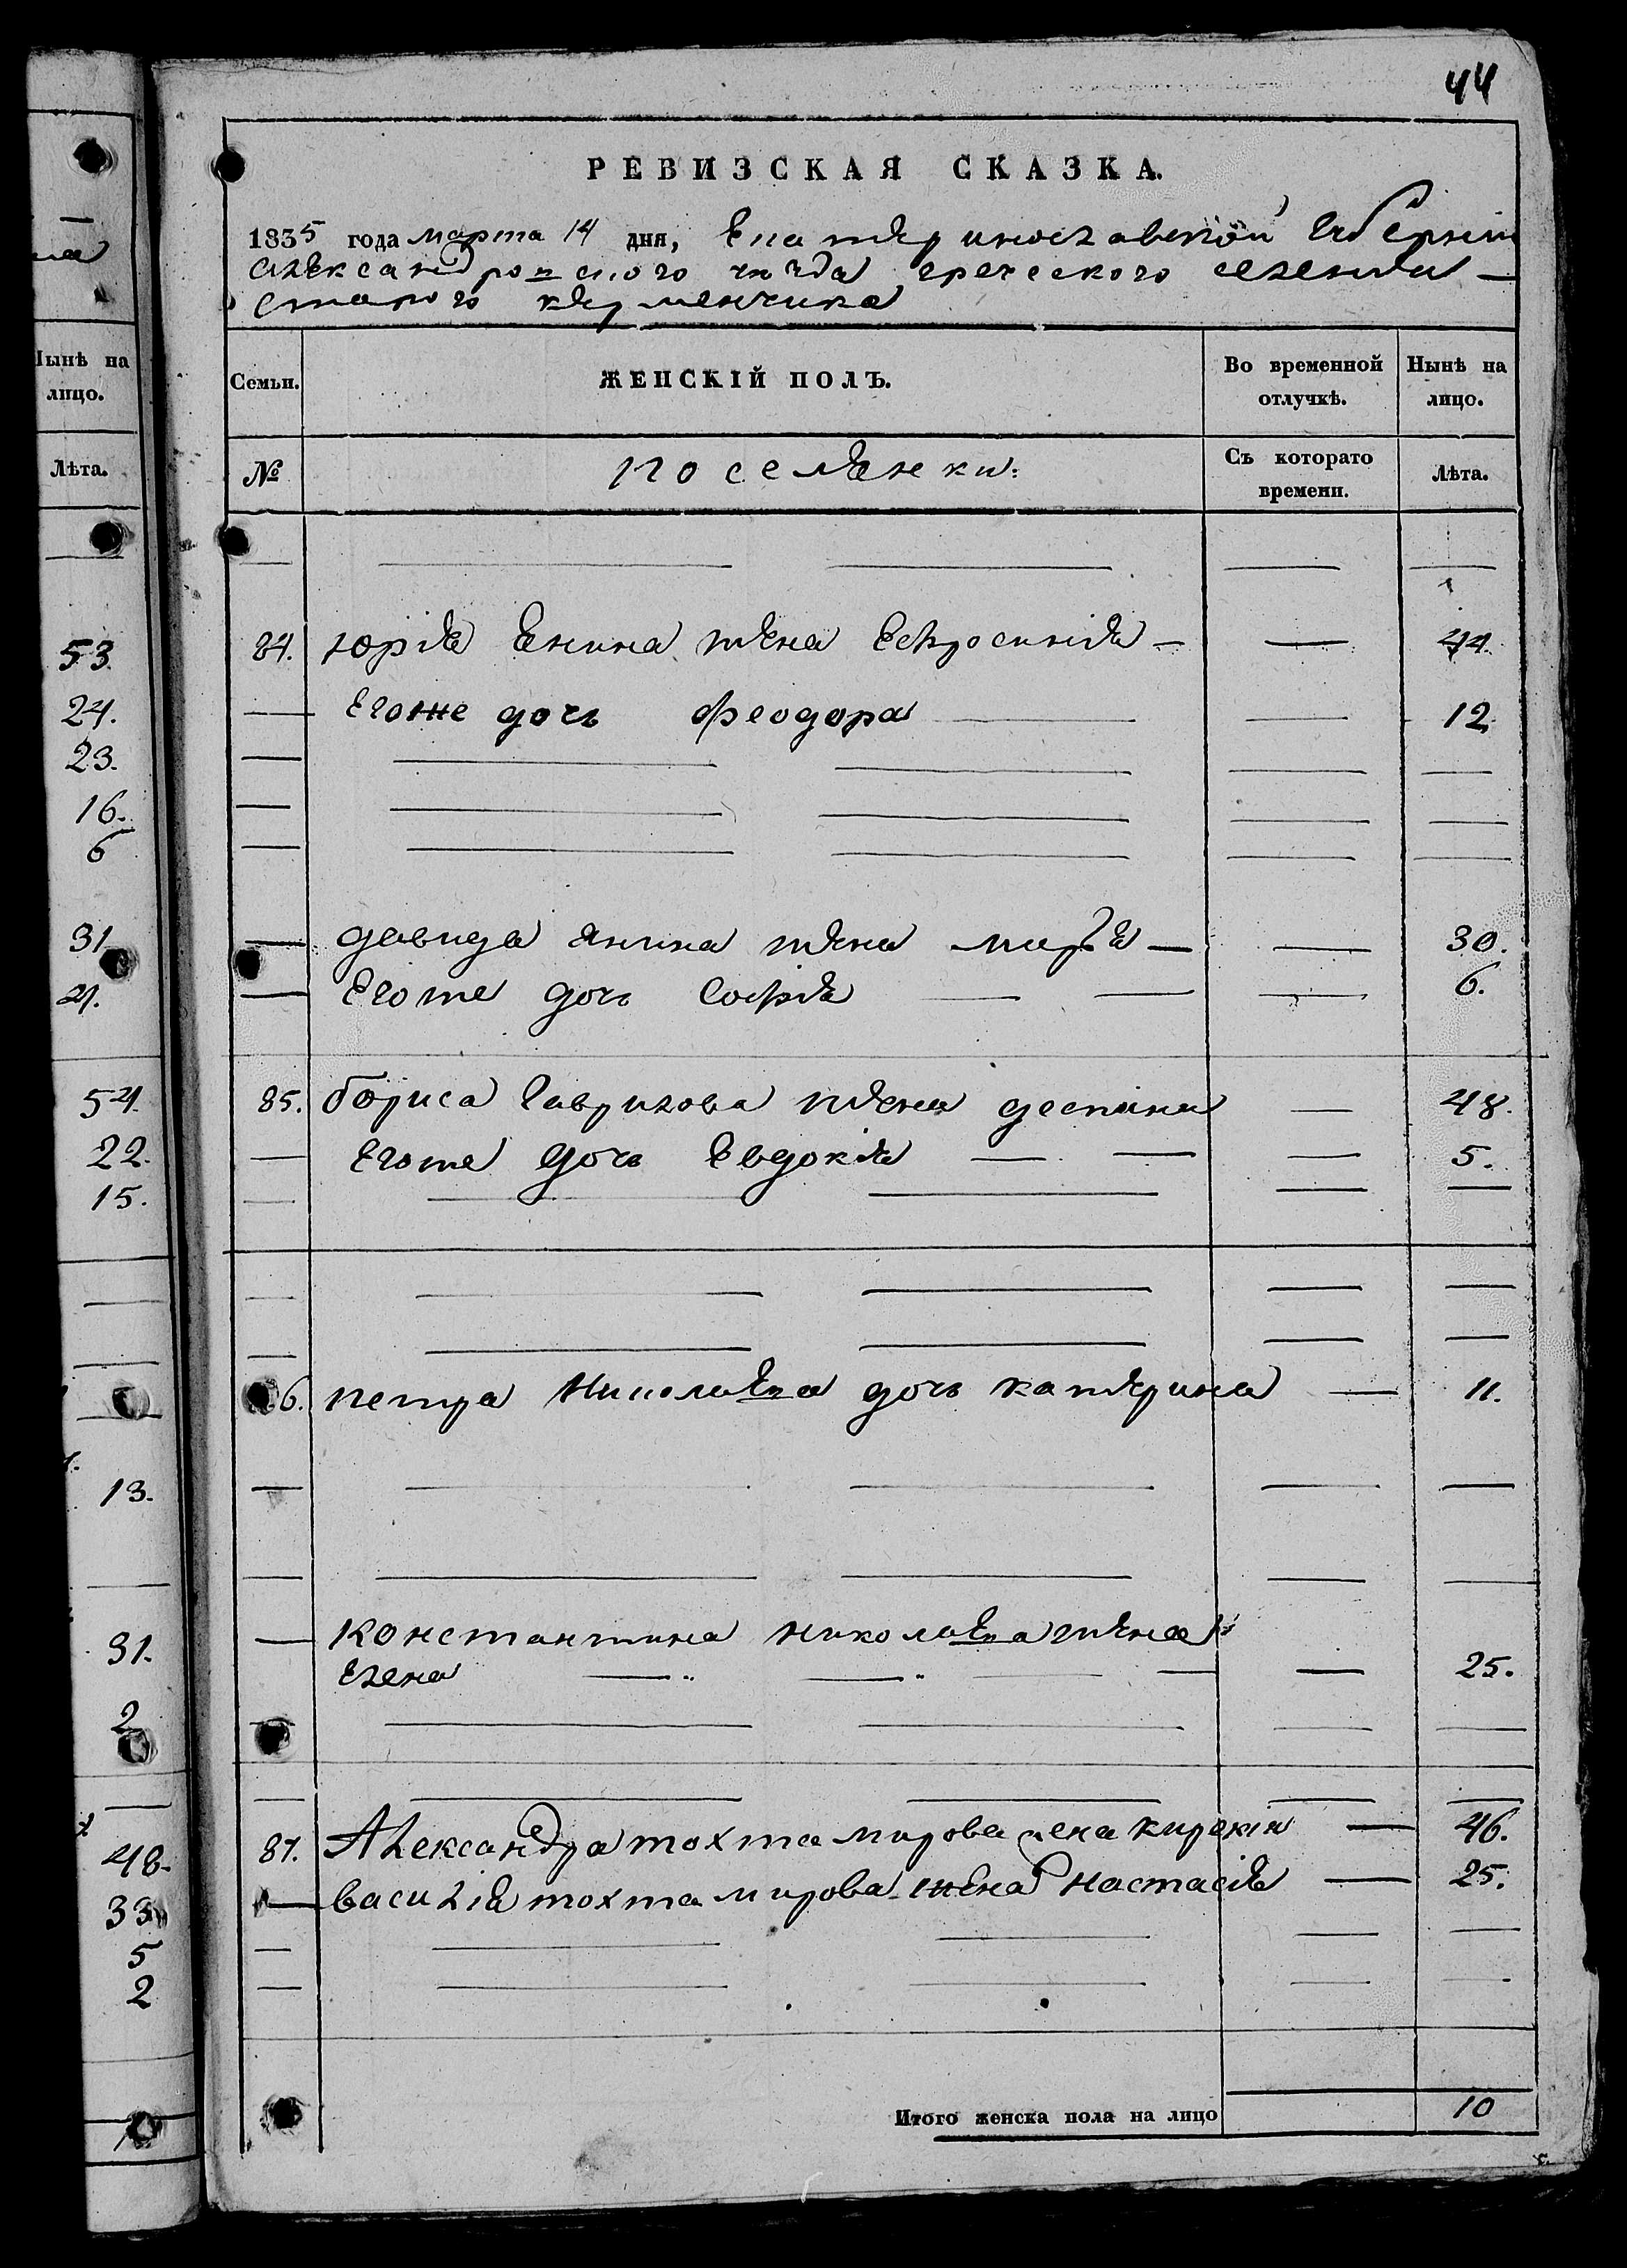 44
РЕВИЗСКАЯ СКАЗКА.
1835 года марта 14 дня, Екатериносلавской Губерніи
Александровского уезда греческого селенія
Старого керменчика
Семьи. ЖЕНСКІЙ ПОЛЪ. Во временной отлучкѣ. Нынѣ на лицо.
№ поселянки: Съ которато времени. Лѣта.
84. юрія Янина жена Ефросинія — — 44.
— Егоже дочь феодора — — 12.
— давида янина жена марія — — 30.
— Егоже дочь Софія — — — 6.
85. бориса Гаврилова жена деспина — 48.
— Егоже дочь Евдокія — — — 5.
86. петра Николаева дочь катерина — 11.
— Константина николаева жена
Елена — — — — — 25.
87. Александра тохтамирова жена кирекія — 46.
— василія тохтамирова жена Настасія — 25.
Итого женска пола на лицо 10
Нынѣ на
лицо.
Лѣта.
53.
24.
23.
16.
6
31
4.
54.
22.
15.
13.
31.
2
48.
33
5
2